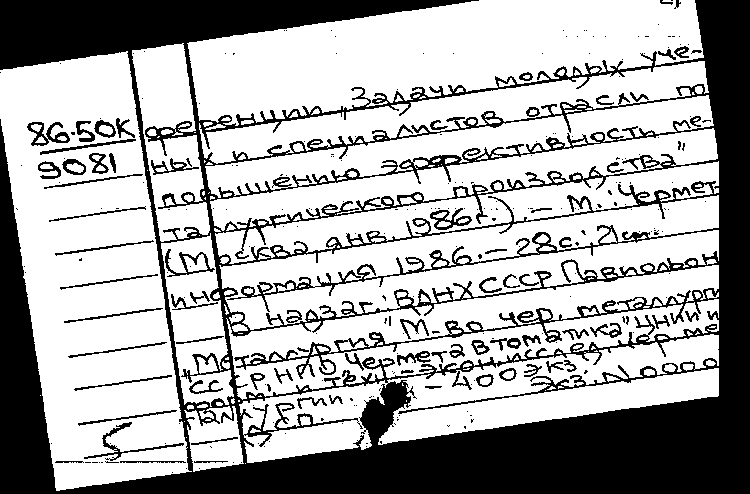 86-50К
9081
ференции „Задачи молодых уче-
ных и специалистов отрасли по
повышению эффективность ме-
таллургического производства"
(Москва, янв. 1986г.). – М.: Чермет-
информация, 1986. – 28с.; 21см.
В надзаг.: ВДНХ СССР, Павильон
„Металлургия," М-во чер. металлурги
СССР, НПО „Черметавтоматика" ЦНИИ и
форм. и техн.-экон. исслед. чер. ме
таллургии. – 400 экз.
Экз. N 0000
5